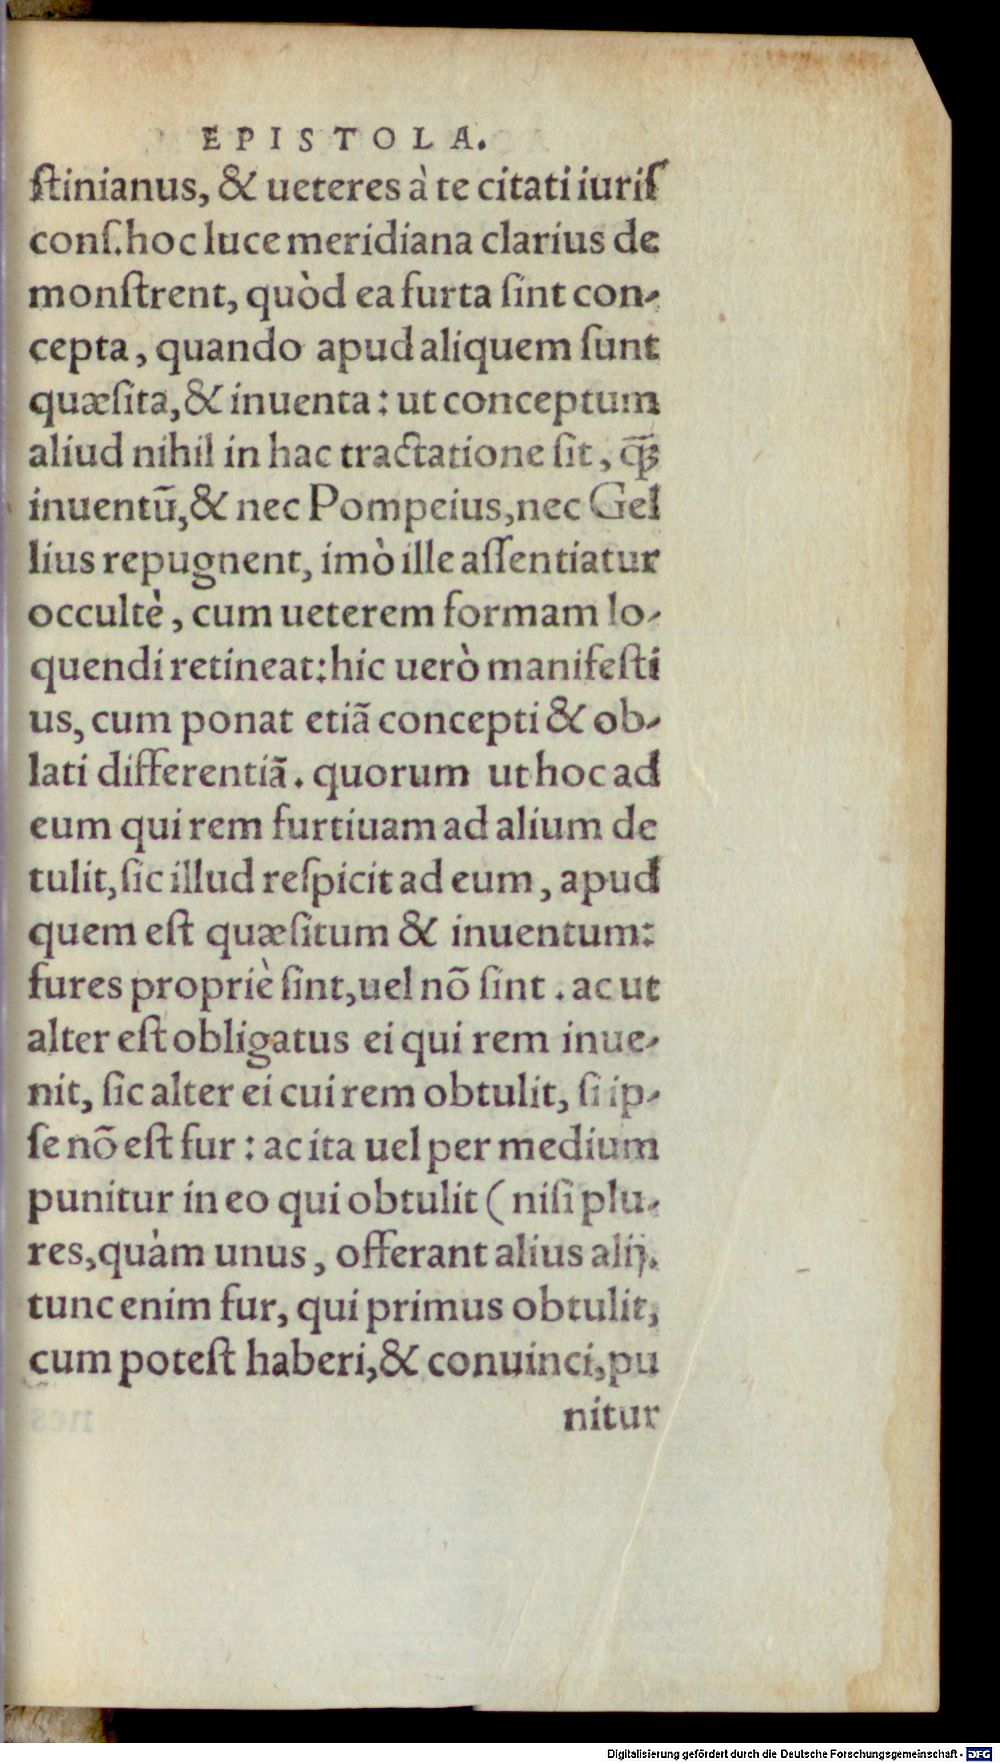 EPISTOLA.
ſtinianus, & ueteres à te citati iuriſ
conſ. hoc luce meridiana clarius de
monſtrent, quòd ea furta ſint con-
cepta, quando apud aliquem ſunt
quæſita, & inuenta: ut conceptum
aliud nihil in hac tractatione ſit, ꝗ̃ꝫ
inuentũ, & nec Pompeius, nec Gel
lius repugnent, imò ille aſſentiatur
occultè, cum ueterem formam lo-
quendi retineat: hic uerò manifeſti
us, cum ponat etiã concepti & ob-
lati differentiã. quorum ut hoc ad
eum qui rem furtiuam ad alium de
tulit, ſic illud reſpicit ad eum, apud
quem eſt quæſitum & inuentum:
fures propriè ſint, uel nõ ſint. ac ut
alter eſt obligatus ei qui rem inue-
nit, ſic alter ei cui rem obtulit, ſi ip-
ſe nõ eſt fur: ac ita uel per medium
punitur in eo qui obtulit (niſi plu-
res, quàm unus, offerant alius alij.
tunc enim fur, qui primus obtulit,
cum poteſt haberi, & conuinci, pu
nitur
Digitalisierung gefördert durch die Deutsche Forschungsgemeinschaft - DFG